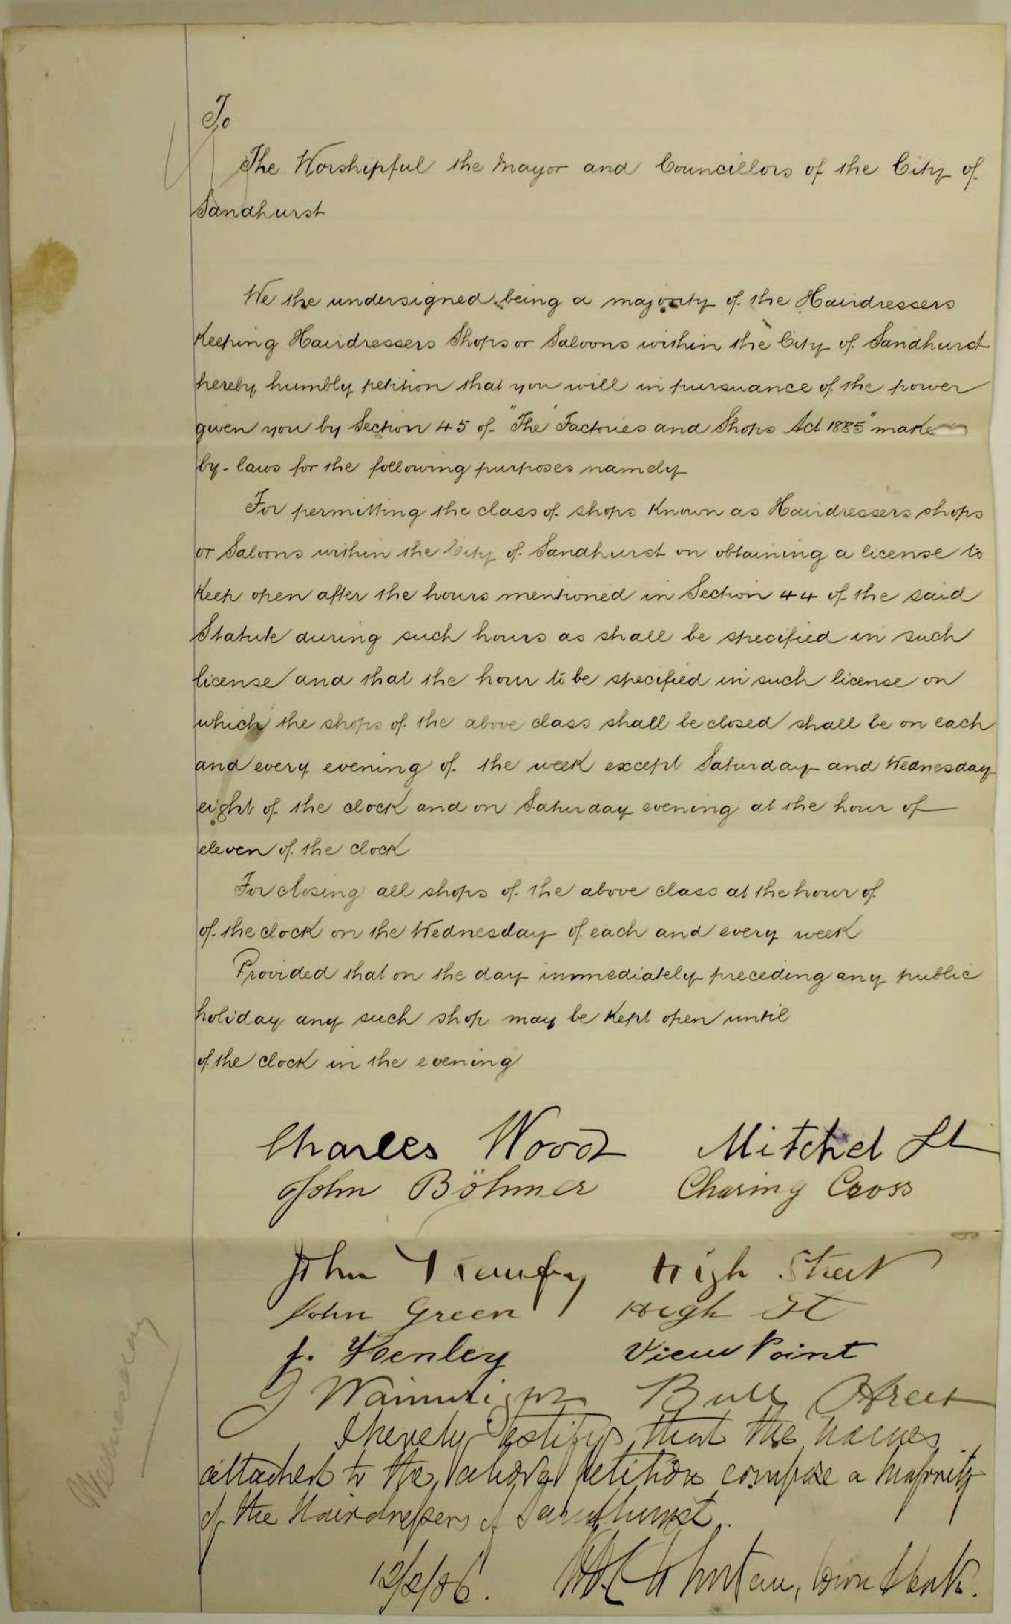 To
The Worshipful the Mayor and Councillors of the City of
Sandhurst
We the undersigned being a majority of the Hairdressers
Keeping Hairdressers Shops or Saloons within the City of Sandhurst
hereby humbly petition that you will in pursuance of the power
given you by Section 45 of "The "Factories and Shops Act 1885" make
by-laws for the following purposes namely
For permitting the class of shops known as Hairdressers shops
or Saloons within the City of Sandhurst on obtaining a license to
Keep open after the hours mentioned in Section 44 of the said
Statute during such hours as shall be specified in such
license and that the hour to be specified in such license on
which the shops of the above class shall be closed shall be on each
and every evening of the week except Saturday and Wednesday
eight of the clock and on Saturday evening at the hour of
eleven of the clock
For closing all shops of the above class at the hour of
of the clock on the Wednesday of each and every week
Provided that on the day immediately preceding any public
holiday any such shop may be Kept open until
of the clock in the evening
Charles Wood Mitchel St
John Böhmer Charing Cross
John High Street
John Green High St
J. Henley View Point
Wainwright Bull Street
I hereby testify that the names
attached to the above petition compose a majority
of the Hairdressers of Sandhurst.
12/2/86. Town Clerk.
Wednesday